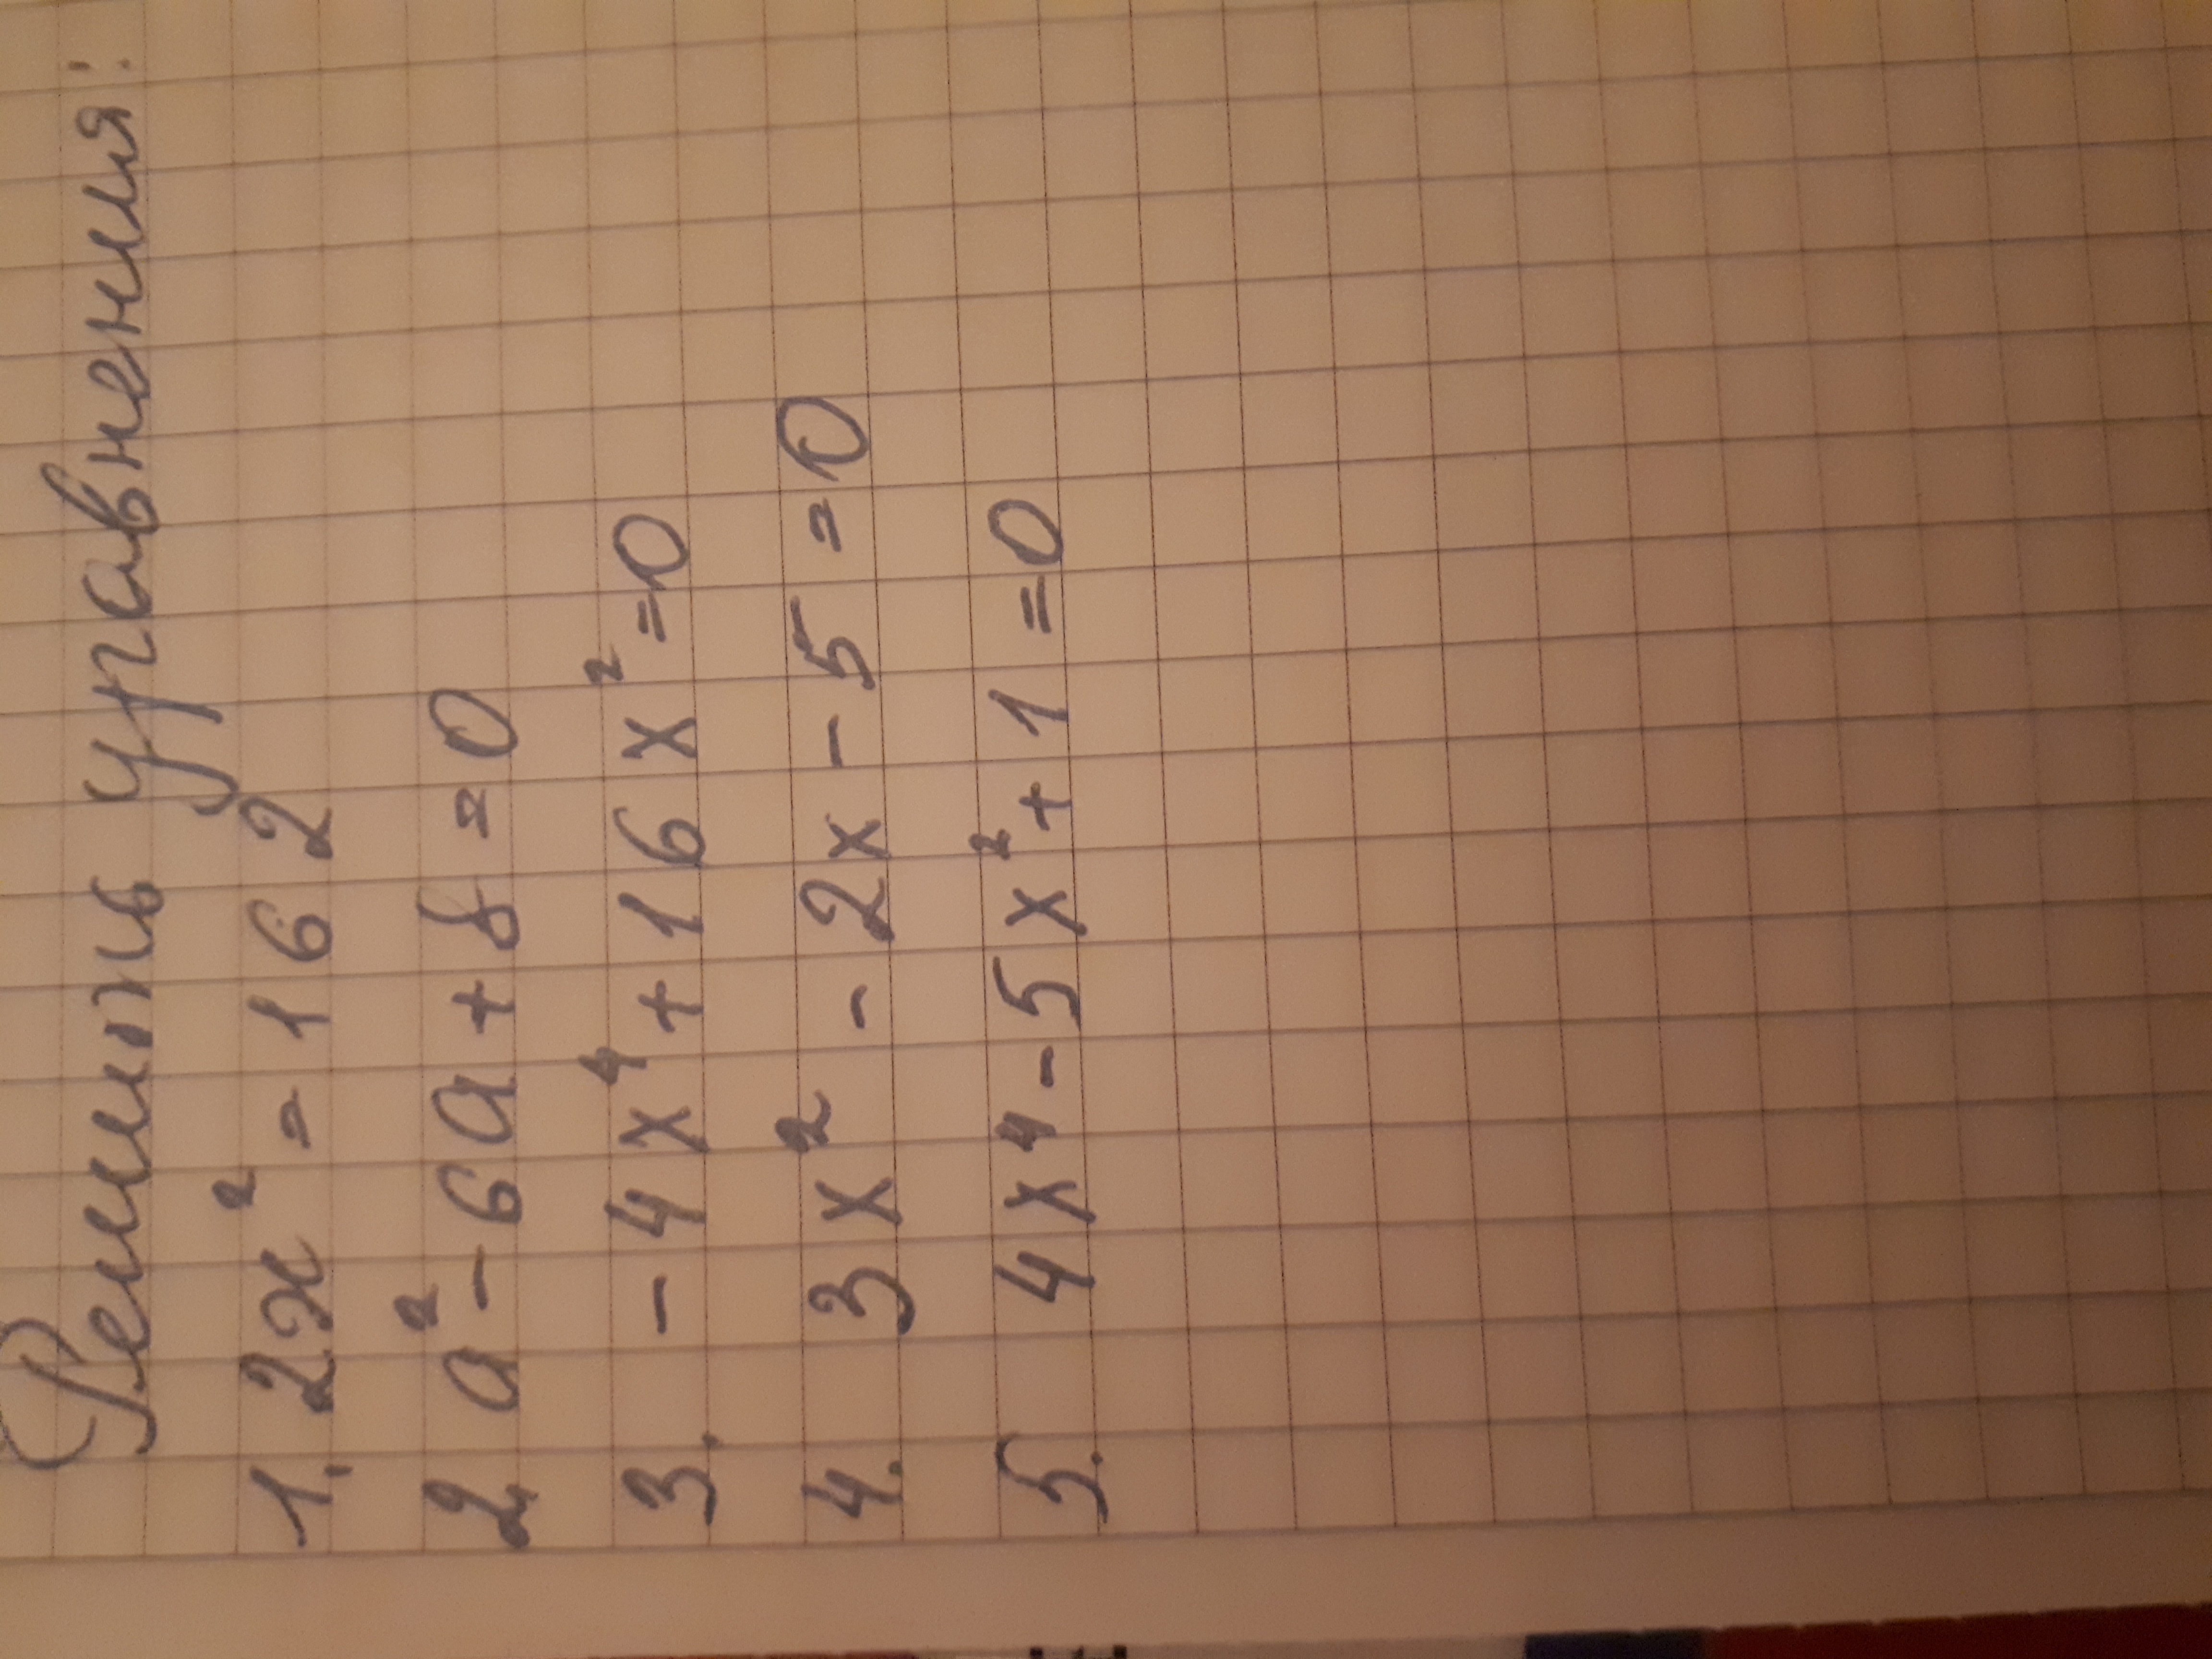 Решить уравнения:
1. 2x² = 162
2. a² - 6a + 8 = 0
3. - 4x⁴ + 16x² = 0
4. 3x² - 2x - 5 = 0
5. 4x⁴ - 5x² + 1 = 0